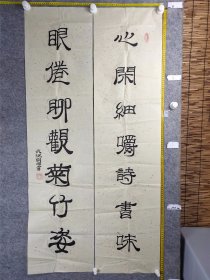 心閑細嚼詩書味
眼倦聊觀菊竹姿